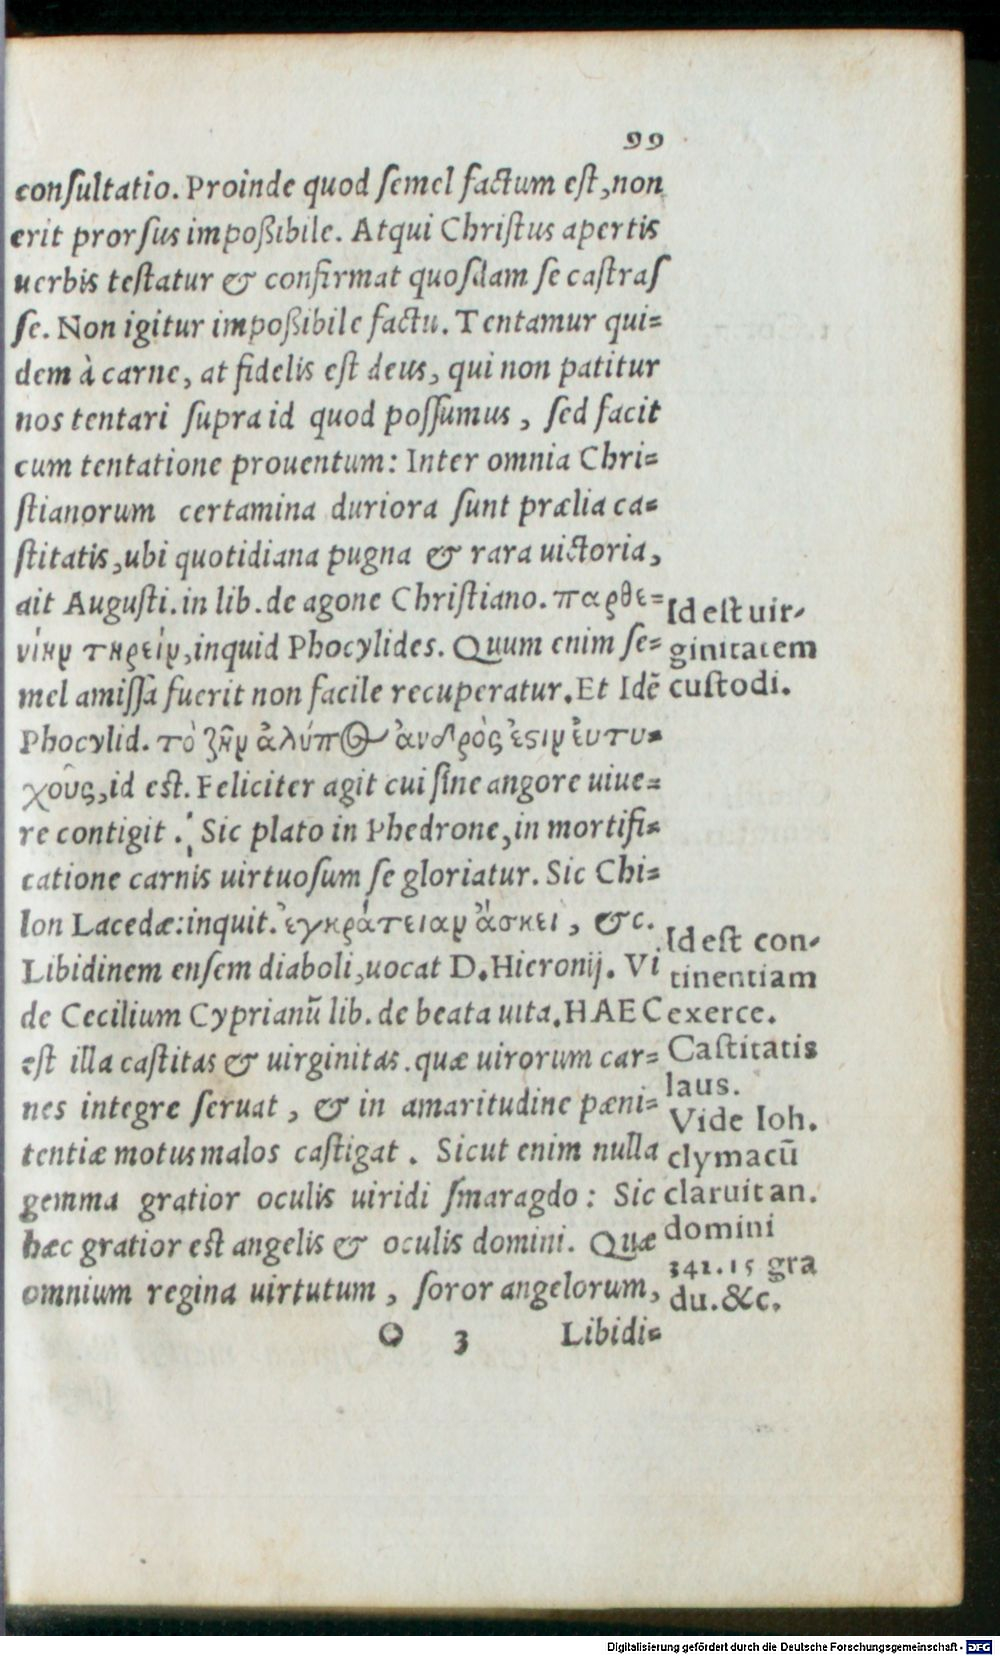 99
conſultatio. Proinde quod ſemel factum eſt, non
erit prorſus impoßibile. Atqui Chriſtus apertis
uerbis teſtatur & confirmat quoſdam ſe caſtraſ
ſe. Non igitur impoßibile factu. Tentamur qui=
dem à carne, at fidelis eſt deus, qui non patitur
nos tentari ſupra id quod poſſumus, ſed facit
cum tentatione prouentum: Inter omnia Chri=
ſtianorum certamina duriora ſunt prælia ca=
ſtitatis, ubi quotidiana pugna & rara uictoria,
ait Auguſti. in lib. de agone Chriſtiano. παρθε=
νίην τηρεῖν, inquid Phocylides. Quum enim ſe=
mel amiſſa fuerit non facile recuperatur. Et Idē
Phocylid. τὸ ζῆν ἀλύπως ἀνδρὸς ἐςιν εὐτυ=
χοῦς, id est. Feliciter agit cui ſine angore uiue=
re contigit. Sic plato in Phedrone, in mortifi=
catione carnis uirtuoſum ſe gloriatur. Sic Chi=
lon Lacedæ: inquit. ἐγκράτειαν ἄσκει, &c.
Libidinem enſem diaboli, uocat D. Hieronij. Vi
de Cecilium Cyprianū lib. de beata uita. HAEC
eſt illa caſtitas & uirginitas. quæ uirorum car=
nes integre ſeruat, & in amaritudine pæni=
tentiæ motus malos caſtigat. Sicut enim nulla
gemma gratior oculis uiridi ſmaragdo: Sic
hæc gratior est angelis & oculis domini. Quæ
omnium regina uirtutum, ſoror angelorum,
O 3 Libidi=
Id eſt uir-
ginitatem
cuſtodi.
Id eſt con-
tinentiam
exerce.
Caſtitatis
laus.
Vide Ioh.
clymacū
claruit an.
domini
341. 15 gra
du. &c.
Digitalisierung gefördert durch die Deutsche Forschungsgemeinschaft - DFG